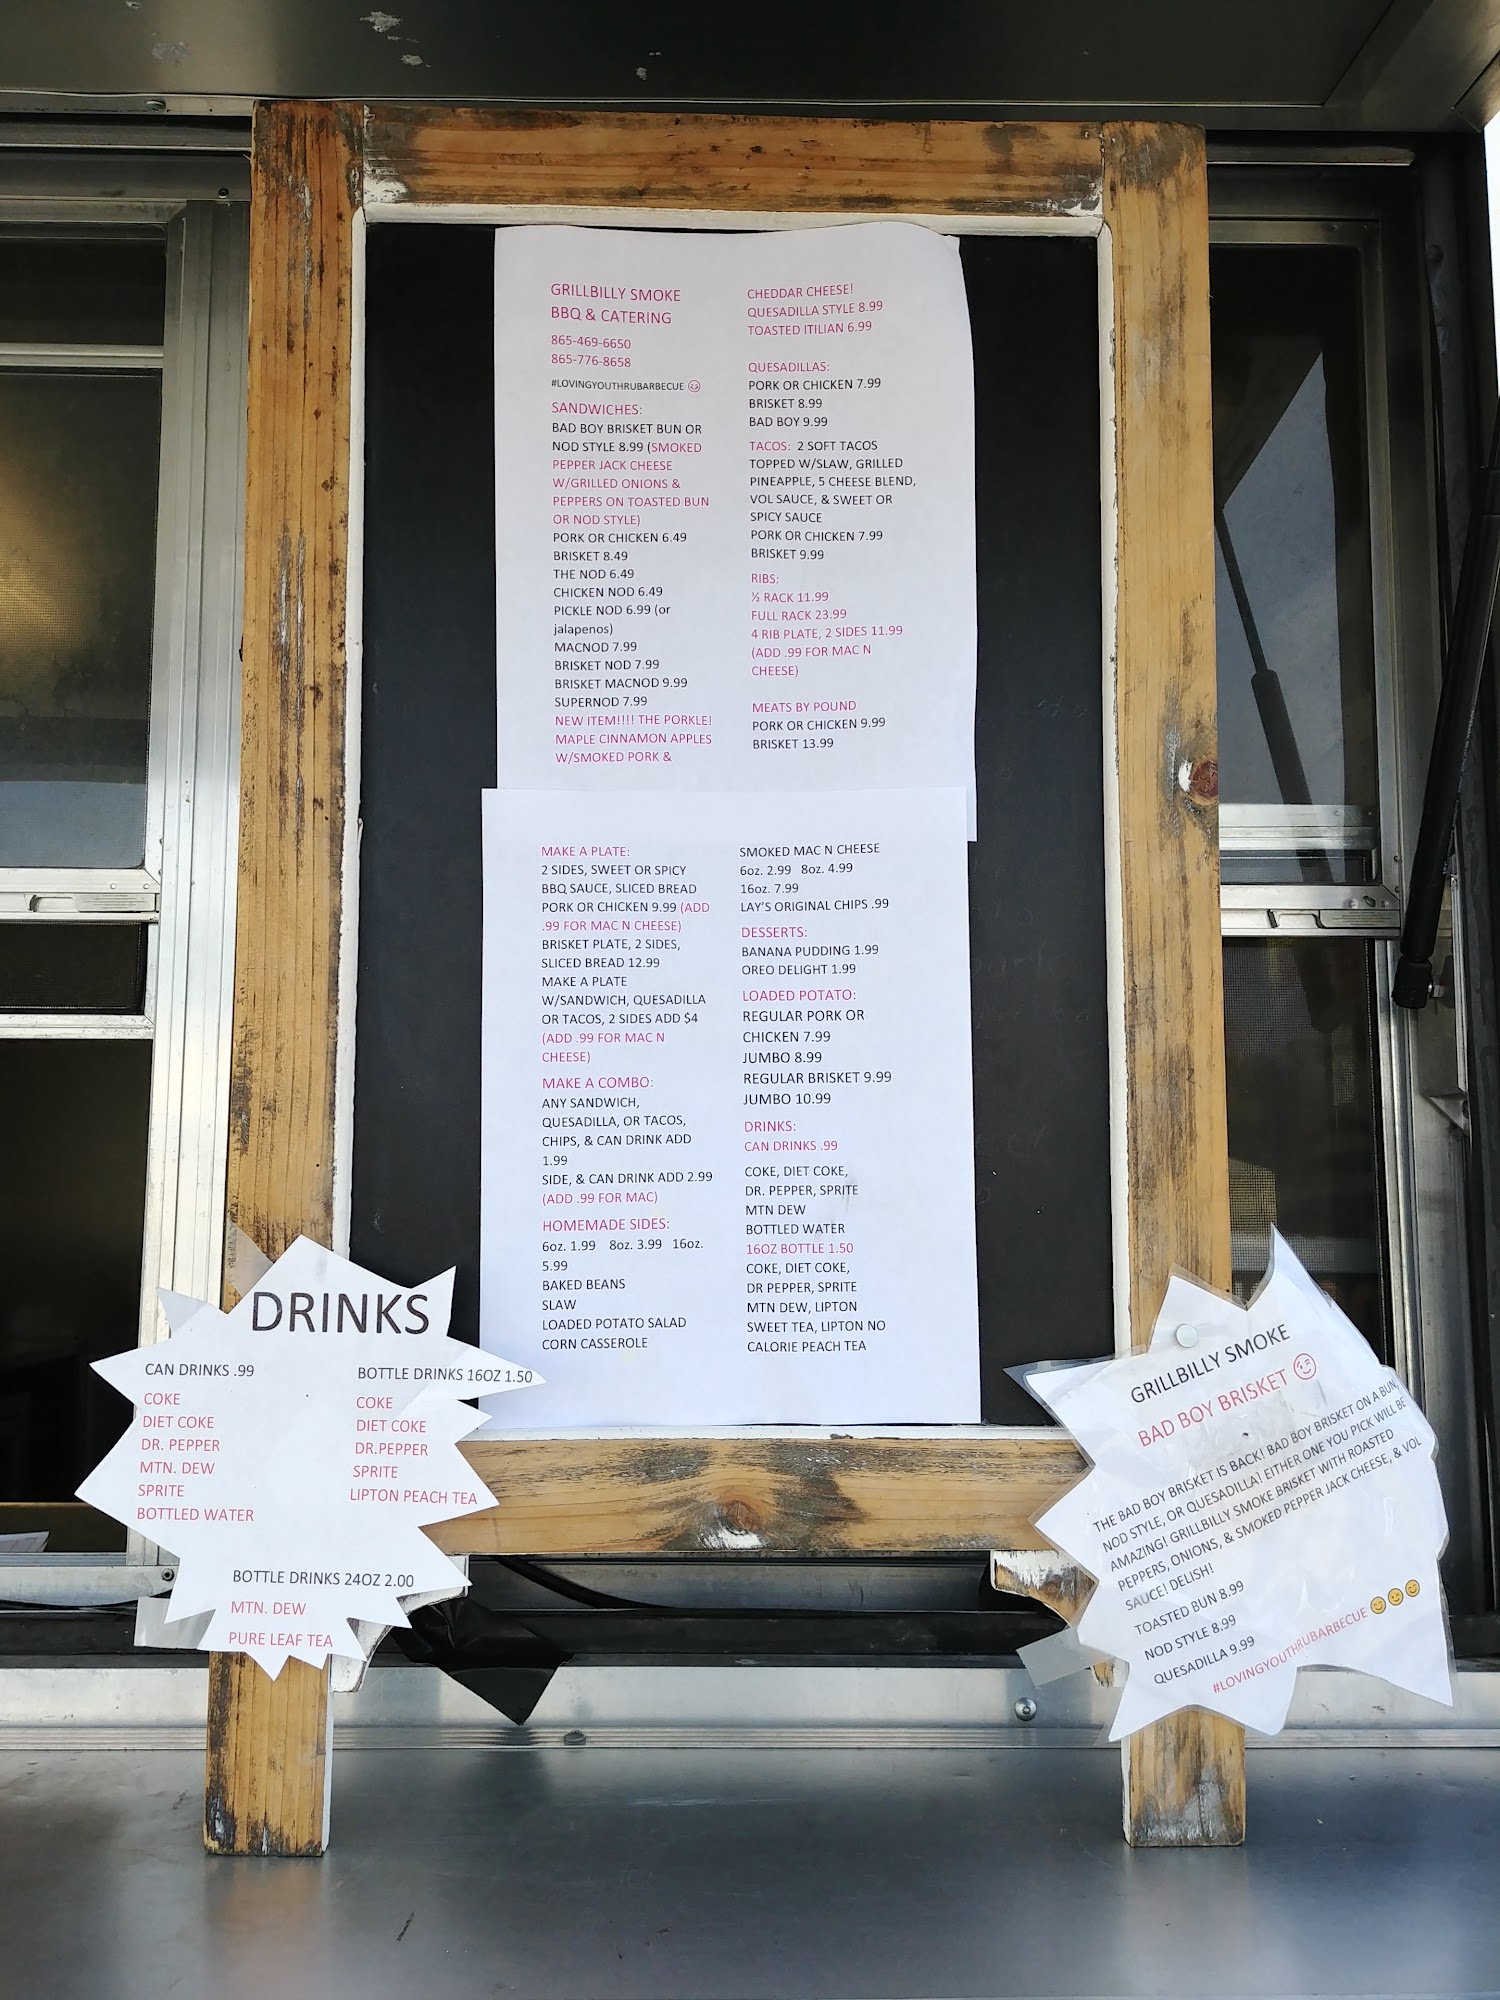 GRILLBILLY SMOKE
BBQ & CATERING
865-469-6650
865-776-8658
#LOVINGYOUTHRUBARBECUE ☺
SANDWICHES:
BAD BOY BRISKET BUN OR
NOD STYLE 8.99 (SMOKED
PEPPER JACK CHEESE
W/GRILLED ONIONS &
PEPPERS ON TOASTED BUN
OR NOD STYLE)
PORK OR CHICKEN 6.49
BRISKET 8.49
THE NOD 6.49
CHICKEN NOD 6.49
PICKLE NOD 6.99 (or
jalapenos)
MACNOD 7.99
BRISKET NOD 7.99
BRISKET MACNOD 9.99
SUPERNOD 7.99
NEW ITEM!!!! THE PORKLE!
MAPLE CINNAMON APPLES
W/SMOKED PORK &
CHEDDAR CHEESE!
QUESADILLA STYLE 8.99
TOASTED ITILIAN 6.99
QUESADILLAS:
PORK OR CHICKEN 7.99
BRISKET 8.99
BAD BOY 9.99
TACOS: 2 SOFT TACOS
TOPPED W/SLAW, GRILLED
PINEAPPLE, 5 CHEESE BLEND,
VOL SAUCE, & SWEET OR
SPICY SAUCE
PORK OR CHICKEN 7.99
BRISKET 9.99
RIBS:
½ RACK 11.99
FULL RACK 23.99
4 RIB PLATE, 2 SIDES 11.99
(ADD .99 FOR MAC N
CHEESE)
MEATS BY POUND
PORK OR CHICKEN 9.99
BRISKET 13.99
MAKE A PLATE:
2 SIDES, SWEET OR SPICY
BBQ SAUCE, SLICED BREAD
PORK OR CHICKEN 9.99 (ADD
.99 FOR MAC N CHEESE)
BRISKET PLATE, 2 SIDES,
SLICED BREAD 12.99
MAKE A PLATE
W/SANDWICH, QUESADILLA
OR TACOS, 2 SIDES ADD $4
(ADD .99 FOR MAC N
CHEESE)
MAKE A COMBO:
ANY SANDWICH,
QUESADILLA, OR TACOS,
CHIPS, & CAN DRINK ADD
1.99
SIDE, & CAN DRINK ADD 2.99
(ADD .99 FOR MAC)
HOMEMADE SIDES:
6oz. 1.99 8oz. 3.99 16oz.
5.99
BAKED BEANS
SLAW
LOADED POTATO SALAD
CORN CASSEROLE
SMOKED MAC N CHEESE
6oz. 2.99 8oz. 4.99
16oz. 7.99
LAY'S ORIGINAL CHIPS .99
DESSERTS:
BANANA PUDDING 1.99
OREO DELIGHT 1.99
LOADED POTATO:
REGULAR PORK OR
CHICKEN 7.99
JUMBO 8.99
REGULAR BRISKET 9.99
JUMBO 10.99
DRINKS:
CAN DRINKS .99
COKE, DIET COKE,
DR. PEPPER, SPRITE
MTN DEW
BOTTLED WATER
16OZ BOTTLE 1.50
COKE, DIET COKE,
DR PEPPER, SPRITE
MTN DEW, LIPTON
SWEET TEA, LIPTON NO
CALORIE PEACH TEA
DRINKS
CAN DRINKS .99
COKE
DIET COKE
DR. PEPPER
MTN. DEW
SPRITE
BOTTLED WATER
BOTTLE DRINKS 16OZ 1.50
COKE
DIET COKE
DR.PEPPER
SPRITE
LIPTON PEACH TEA
BOTTLE DRINKS 24OZ 2.00
MTN. DEW
PURE LEAF TEA
GRILLBILLY SMOKE
BAD BOY BRISKET 😉
THE BAD BOY BRISKET IS BACK! BAD BOY BRISKET ON A BUN,
NOD STYLE, OR QUESADILLA! EITHER ONE YOU PICK WILL BE
AMAZING! GRILLBILLY SMOKE BRISKET WITH ROASTED
PEPPERS, ONIONS, & SMOKED PEPPER JACK CHEESE, & VOL
SAUCE! DELISH!
TOASTED BUN 8.99
NOD STYLE 8.99
QUESADILLA 9.99
#LOVINGYOUTHRUBARBECUE 😊😊😊